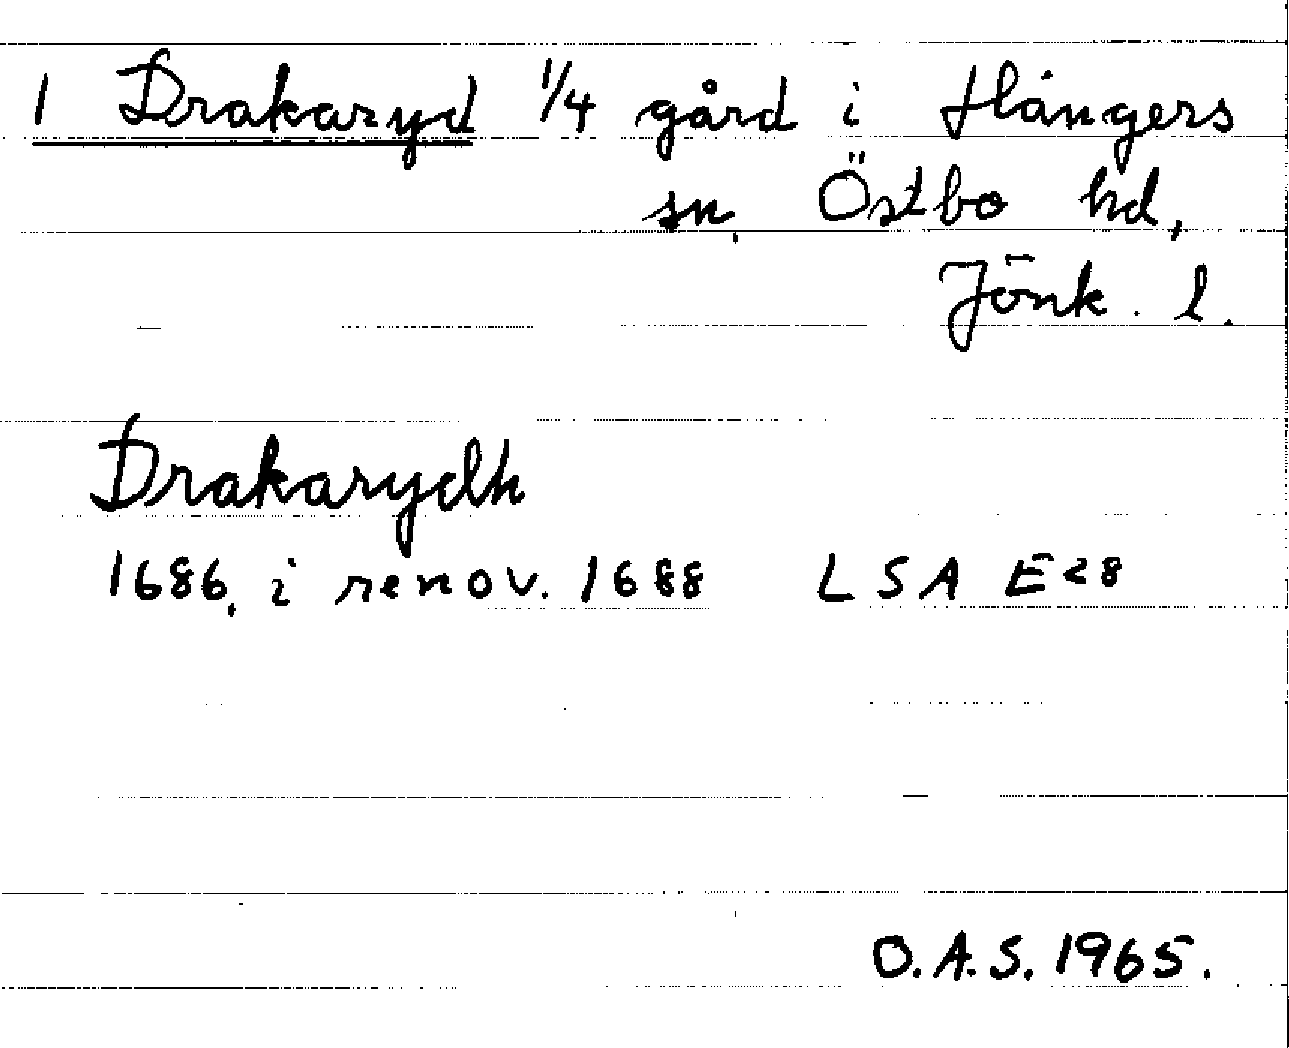 1 Drakaryd 1/4 gård i Hångers
sn, Östbo hd,
Jönk. l.
Drakarydh
1686, i renov. 1688 LSA E28
O.A.S. 1965.